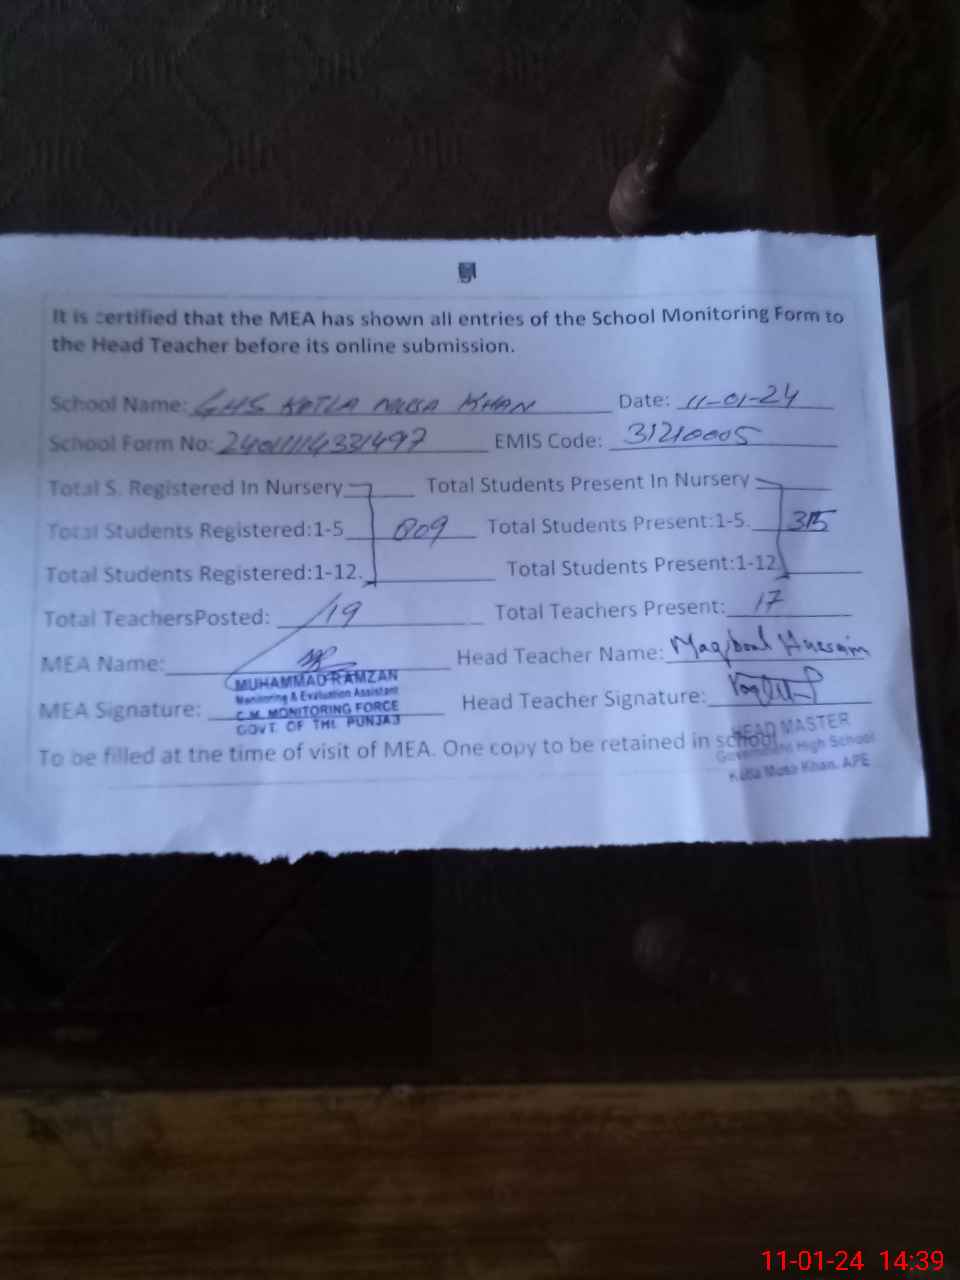 It is certified that the MEA has shown all entries of the School Monitoring Form to
the Head Teacher before its online submission.
School Name: GHS KOTLA MUSA KHAN Date: 11-01-24
School Form No: EMIS Code: 31210005
Total S. Registered In Nursery Total Students Present In Nursery
Total Students Registered:1-5 809 Total Students Present:1-5. 315
Total Students Registered:1-12. Total Students Present:1-12
Total TeachersPosted: 19 Total Teachers Present: 17
MEA Name: Head Teacher Name: Maqbool Hussain
MUHAMMAD RAMZAN
Monitoring & Evaluation Assistant
MEA Signature: Head Teacher Signature:
C.M. MONITORING FORCE
GOVT. OF THE PUNJAB
HEAD MASTER
To be filled at the time of visit of MEA. One copy to be retained in school
Government High School
Kotla Musa Khan. APE
11-01-24 14:39